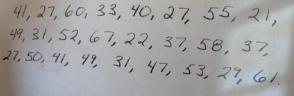 41, 27, 60, 33, 40, 27, 55, 21,
49, 31, 52, 67, 22, 37, 58, 37,
27, 50, 41, 49, 31, 47, 53, 29, 61.